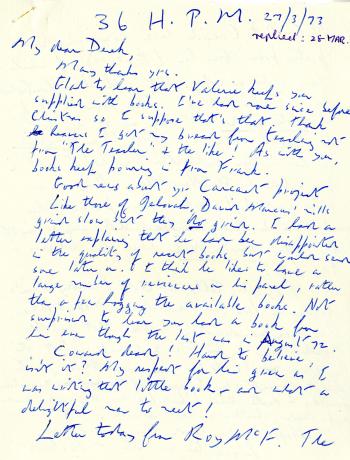 36 H. P. M. 27/3/73
replied: 28 MAR.
My dear Derek,
Many thanks yrs.
Glad to hear that Valerie keeps you
supplied with books. I've had none since before
so I suppose that's that. Thank
heavens I get my bread from teaching not
from "The Teacher" & the like! As with you,
books keep pouring in from Frank.
Good news about yr project
Like those of Jehovah, David Marcus' mills
grind slow but they do grind. I had a
letter explaining that he had been disappointed
in the quality of recent books, but would send
some later on. I think he likes to have a
large number of reviewers on his panel, rather
than a few hogging the available books. Not
surprised to hear you had a book from
him even though the last was in August 72.
Coward dead! Hard to believe
isn't it? My respect for him grew as I
was writing that little book – and what a
delightful man to meet!
Letter today from Roy McF. The